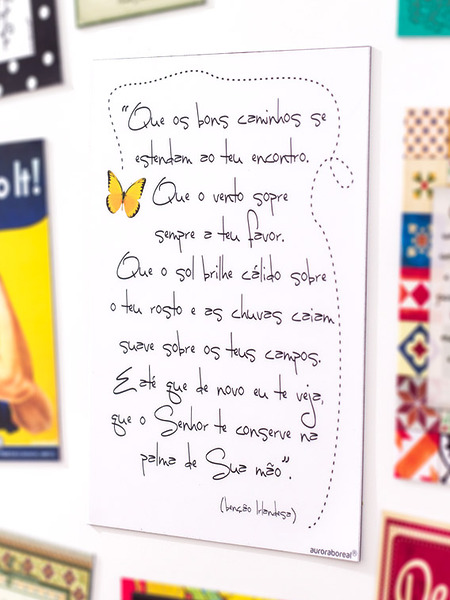 “Que os bons caminhos se
estendam ao teu encontro.
Que o vento sopre
sempre a teu favor.
Que o sol brilhe cálido sobre
o teu rosto e as chuvas caiam
suave sobre os teus campos.
E até que de novo eu te veja,
que o Senhor te conserve na
palma de Sua mão”.
(benção Irlandesa)
auroraboreal®
o It!
De